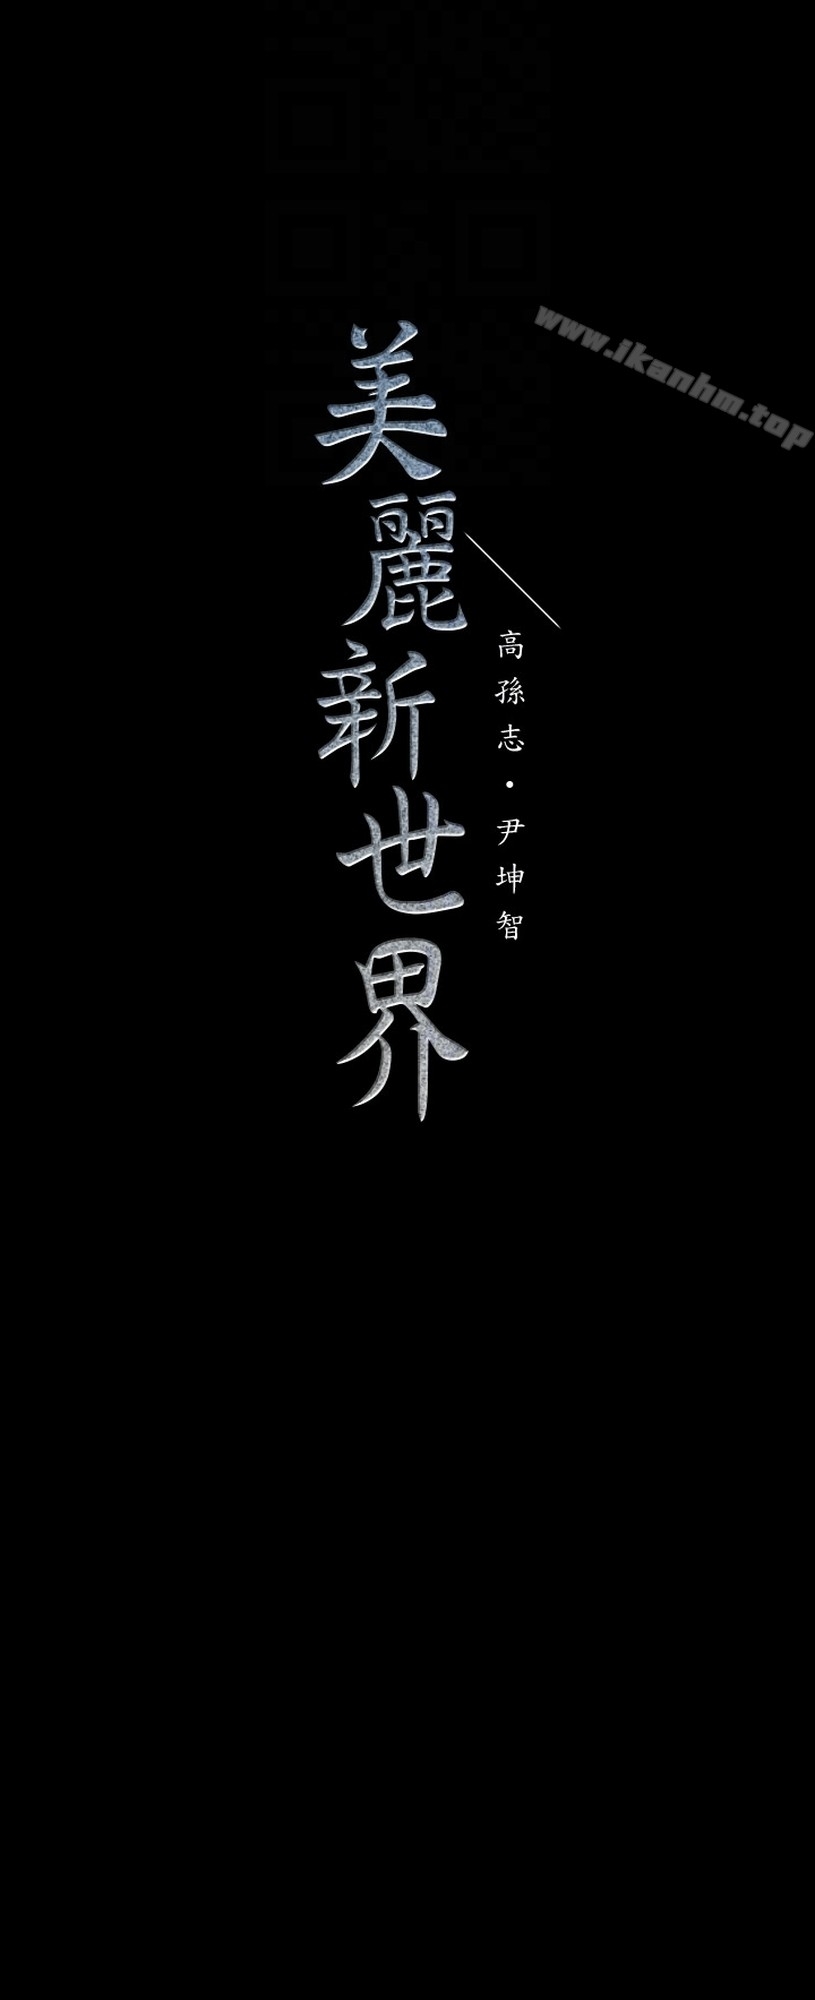 www.ikanhm.top
美麗新世界
高孫志·尹坤智